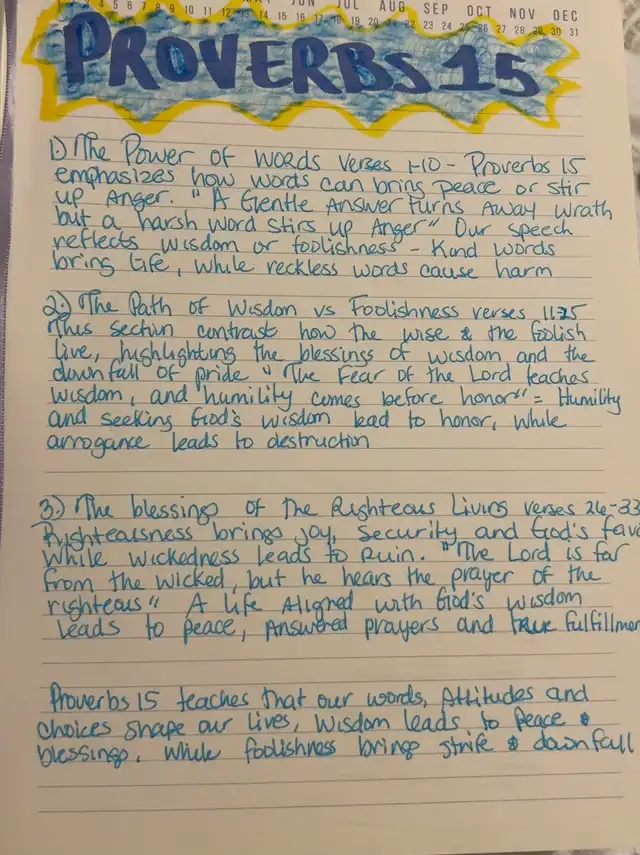 JUN JUL AUG SEP OCT NOV DEC
4 5 6 7 8 9 10 11 12 13 14 15 16 17 18 19 20 21 22 23 24 25 26 27 28 29 30 31
PROVERBS 15
1.) The Power of words verses 1-10 - Proverbs 15
emphasizes how words can bring peace or stir
up Anger. "A Gentle Answer turns Away wrath
but a harsh word stirs up Anger" Our speech
reflects wisdom or foolishness - Kind words
bring life, while reckless words cause harm
2.) The Path of Wisdom vs Foolishness verses 11-25
This section contrast how the wise & the foolish
live, highlighting the blessings of wisdom and the
downfall of pride "The Fear of the Lord teaches
wisdom, and humility comes before honor" = Humility
and seeking God's wisdom lead to honor, while
arrogance leads to destruction
3.) The blessings of the Righteous Living verses 26-33
Righteousness brings joy, security and God's favo
while wickedness leads to Ruin. "The Lord is far
from the wicked, but he hears the prayer of the
righteous" A life Aligned with God's wisdom
leads to peace, Answered prayers and true fulfillmen
Proverbs 15 teaches that our words, Attitudes and
choices shape our lives, Wisdom leads to Peace &
blessings, while foolishness brings strife & downfall